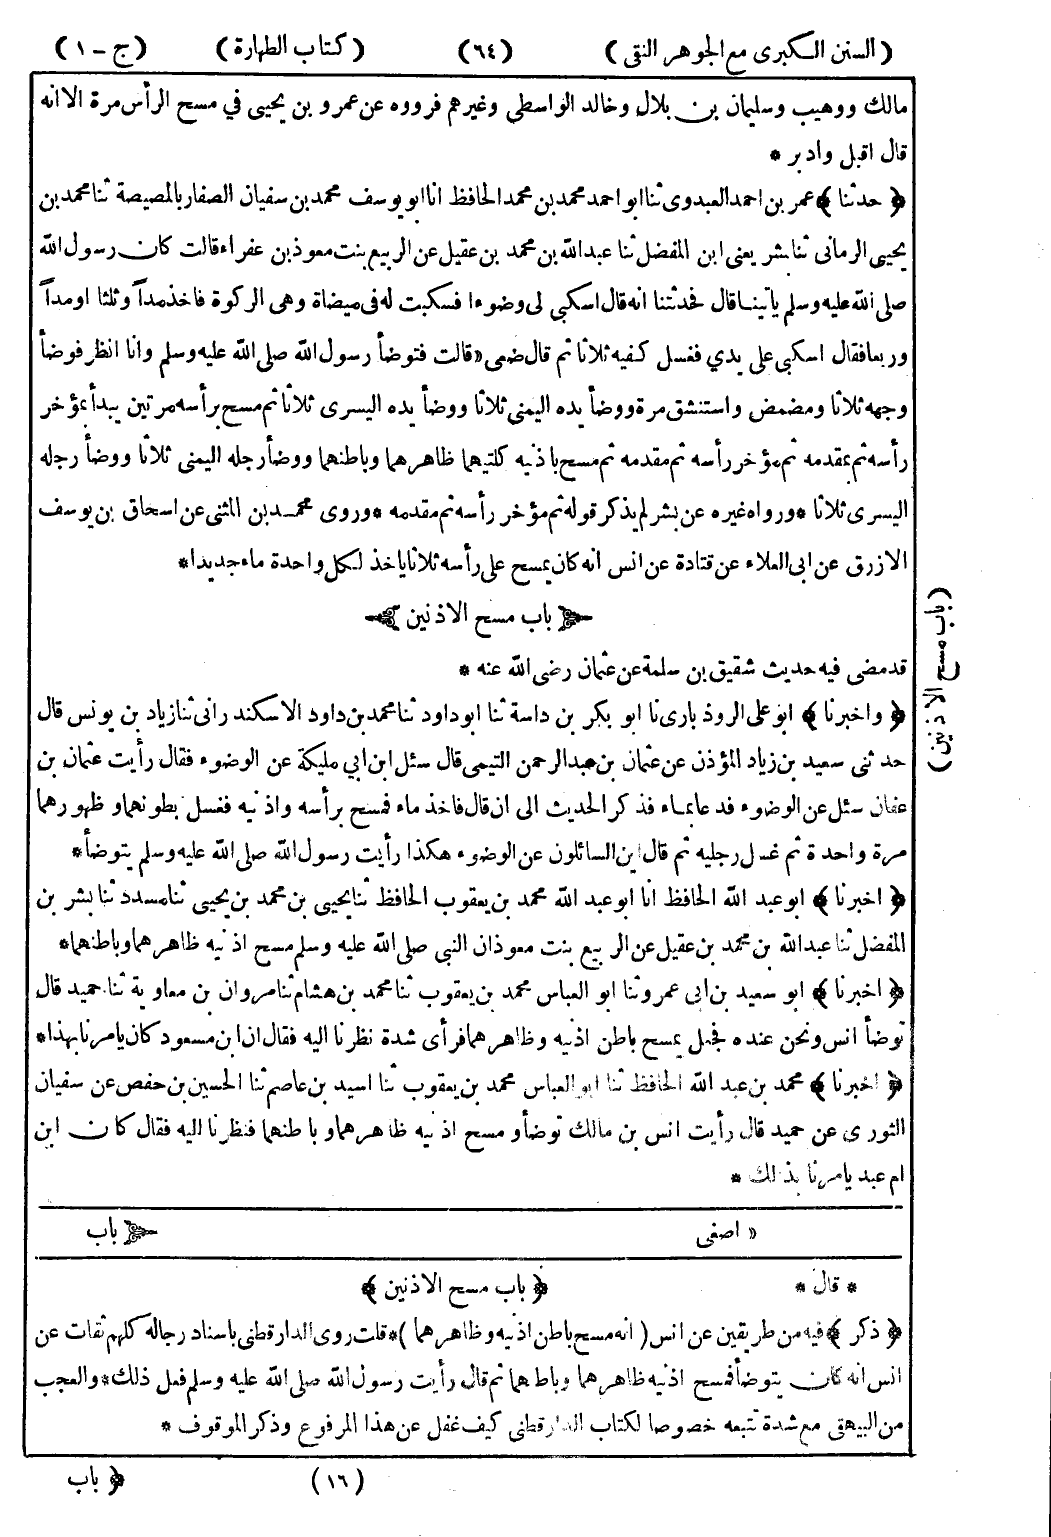 ( السنن الكبرى مع الجوهر النقى ) (٦٤) ( كتاب الطهارة ) ( ج - ١ )
مالك ووهيب وسليمان بن بلال وخالد الواسطى وغيرهم فرووه عن عمرو بن يحيى في مسح الرأس مرة الا انه
قال اقبل وادبر *
﴿ حدثنا ﴾ عمر بن احمد العبدوى ثنا ابو احمد محمد بن محمد الحافظ انا ابو يوسف محمد بن سفيان الصفار بالمصيصة ثنا محمد بن
يحيى الرمانى ثنا بشر يعنى ابن المفضل ثنا عبدالله بن محمد بن عقيل عن الربيع بنت معوذ بن عفراء قالت كان رسول الله
صلى الله عليه وسلم يأتينا قال فحدثتنا انه قال اسكبى لى وضوءا فسكبت له فى ميضاة وهى الركوة فاخذ مداً وثلثا او مداً
وربعا فقال اسكبى على يدي فغسل كفيه ثلاثا ثم قال ضعى « قالت فتوضأ رسول الله صلى الله عليه وسلم وانا انظر فوضأ
وجهه ثلاثا ومضمض واستنشق مرة ووضأ يده اليمنى ثلاثا ووضأ يده اليسرى ثلاثا ثم مسح برأسه مرتين يبدأ بمؤخر
رأسه ثم بمقدمه ثم مؤخر رأسه ثم مقدمه ثم مسح باذنيه كلتيهما ظاهرهما وباطنهما ووضأ رجله اليمنى ثلاثا ووضأ رجله
اليسرى ثلاثا * ورواه غيره عن بشر لم يذكر قوله ثم مؤخر رأسه ثم مقدمه * وروى محمد بن المثنى عن اسحاق بن يوسف
الازرق عن ابى العلاء عن قتادة عن انس انه كان يمسح على رأسه ثلاثا ياخذ لكل واحدة ماء جديدا *
﴿ باب مسح الاذنين ﴾
قد مضى فيه حديث شقيق بن سلمة عن عثمان رضى الله عنه *
﴿ واخبرنا ﴾ ابو على الروذبارى نا ابو بكر بن داسة ثنا ابو داود ثنا محمد بن داود الاسكندرانى ثنا زياد بن يونس قال
حدثنى سعيد بن زياد المؤذن عن عثمان بن عبدالرحمن التيمى قال سئل ابن ابي مليكة عن الوضوء فقال رأيت عثمان بن
عفان سئل عن الوضوء فدعا بماء فذكر الحديث الى ان قال فاخذ ماء فمسح برأسه واذنيه فغسل بطونهما و ظهورهما
مرة واحدة ثم غسل رجليه ثم قال اين السائلون عن الوضوء هكذا رأيت رسول الله صلى الله عليه وسلم يتوضأ *
﴿ اخبرنا ﴾ ابو عبد الله الحافظ انا ابو عبد الله محمد بن يعقوب الحافظ ثنا يحيى بن محمد بن يحيى ثنا مسدد ثنا بشر بن
المفضل ثنا عبدالله بن محمد بن عقيل عن الربيع بنت معوذ ان النبى صلى الله عليه وسلم مسح اذنيه ظاهرهما وباطنهما *
﴿ اخبرنا ﴾ ابو سعيد بن ابى عمرو ثنا ابو العباس محمد بن يعقوب ثنا محمد بن هشام ثنا مروان بن معاوية ثنا حميد قال
توضأ انس ونحن عنده فجعل يمسح باطن اذنيه وظاهرهما فرأى شدة نظرنا اليه فقال ان ابن مسعود كان يامرنا بهذا *
﴿ اخبرنا ﴾ محمد بن عبد الله الحافظ ثنا ابو العباس محمد بن يعقوب ثنا اسيد بن عاصم ثنا الحسين بن حفص عن سفيان
الثورى عن حميد قال رأيت انس بن مالك توضأ و مسح اذنيه ظاهرهما و باطنهما فنظرنا اليه فقال كان ابن
ام عبد يامرنا بذلك *
( باب مسح الاذنين )
« اصغى ﴿ باب
* قال * ﴿ باب مسح الاذنين ﴾
﴿ ذكر ﴾ فيه من طريقين عن انس ( انه مسح باطن اذنيه وظاهرهما ) * قلت روى الدارقطنى باسناد رجاله كلهم ثقات عن
انس انه كان يتوضأ فمسح اذنيه ظاهرهما وباطهما ثم قال رأيت رسول الله صلى الله عليه وسلم فعل ذلك * والعجب
من البيهقى مع شدة تتبعه خصوصا لكتاب الدارقطنى كيف غفل عن هذا المرفوع وذكر الموقوف *
(١٦) ﴿ باب